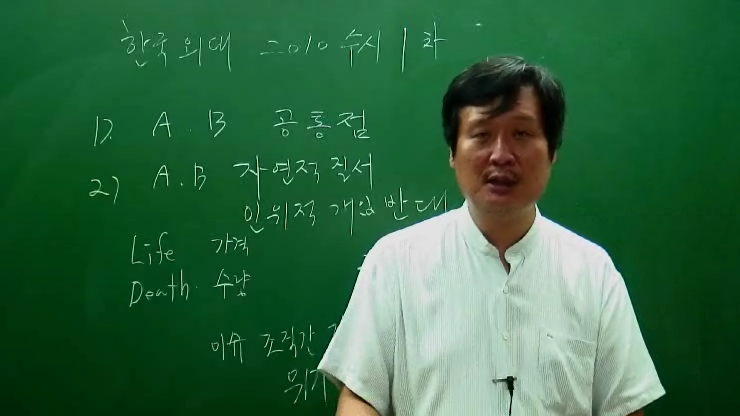 한국외대 2010 수시 1차
1). A.B 공통점
2) A.B 자연적 질서
인위적 개입 반대
Life 가격
Death. 수량
이슈 조직간
위기